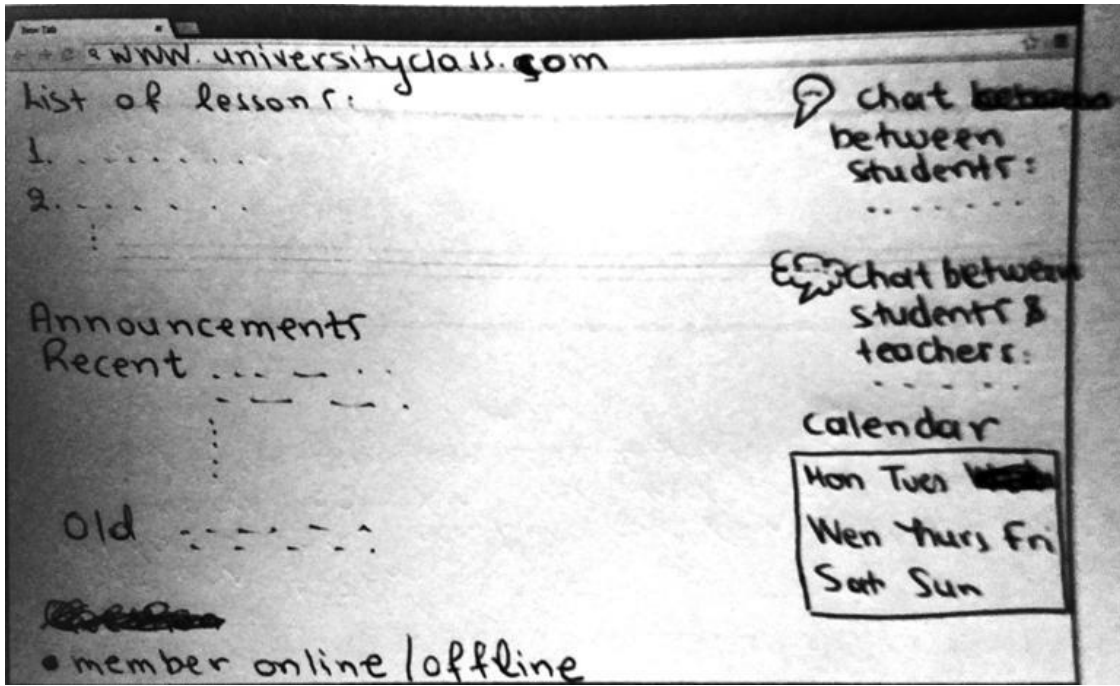 New Tab
www.universityclass.com
List of lessons:
1. . . . . . . .
2. . . . . . .
Announcements
Recent
Old
• member online/offline
chat
between
students:
chat between
students &
teachers:
Calendar
Mon Tues
Wen thurs Fri
Sat Sun